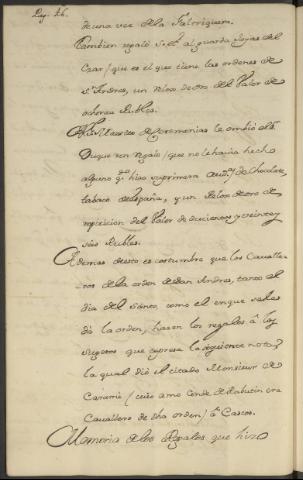 Pag. 26.
de una vez de la Faltriquera.
Tambien regaló S.E. al guarda Joyas del
Czar, que es el que tiene las ordenes de
Sn. Andres, un Relox de oro del Valor de
ochenta Rubles.
Al Maestro de Ceremonias le embió el
Duque un regalo, que no le havia hecho
alguno qdo. hizo su primera aud.a de Chocolate,
tabaco de España, y un Relox de oro de
repeticion del Valor de docientos y veinte y
seis Rubles.
Ademas de esto es costumbre que los Cavalle-
ros de la orden de San Andres, tanto al
dia del Santo, como el en que se les
dá la orden, hacen los regalos á los
sugetos que expresa la siguiente nota,
la qual dió el citado Monsieur de
Cavallero de dha orden
Memoria de los Regalos que hizo